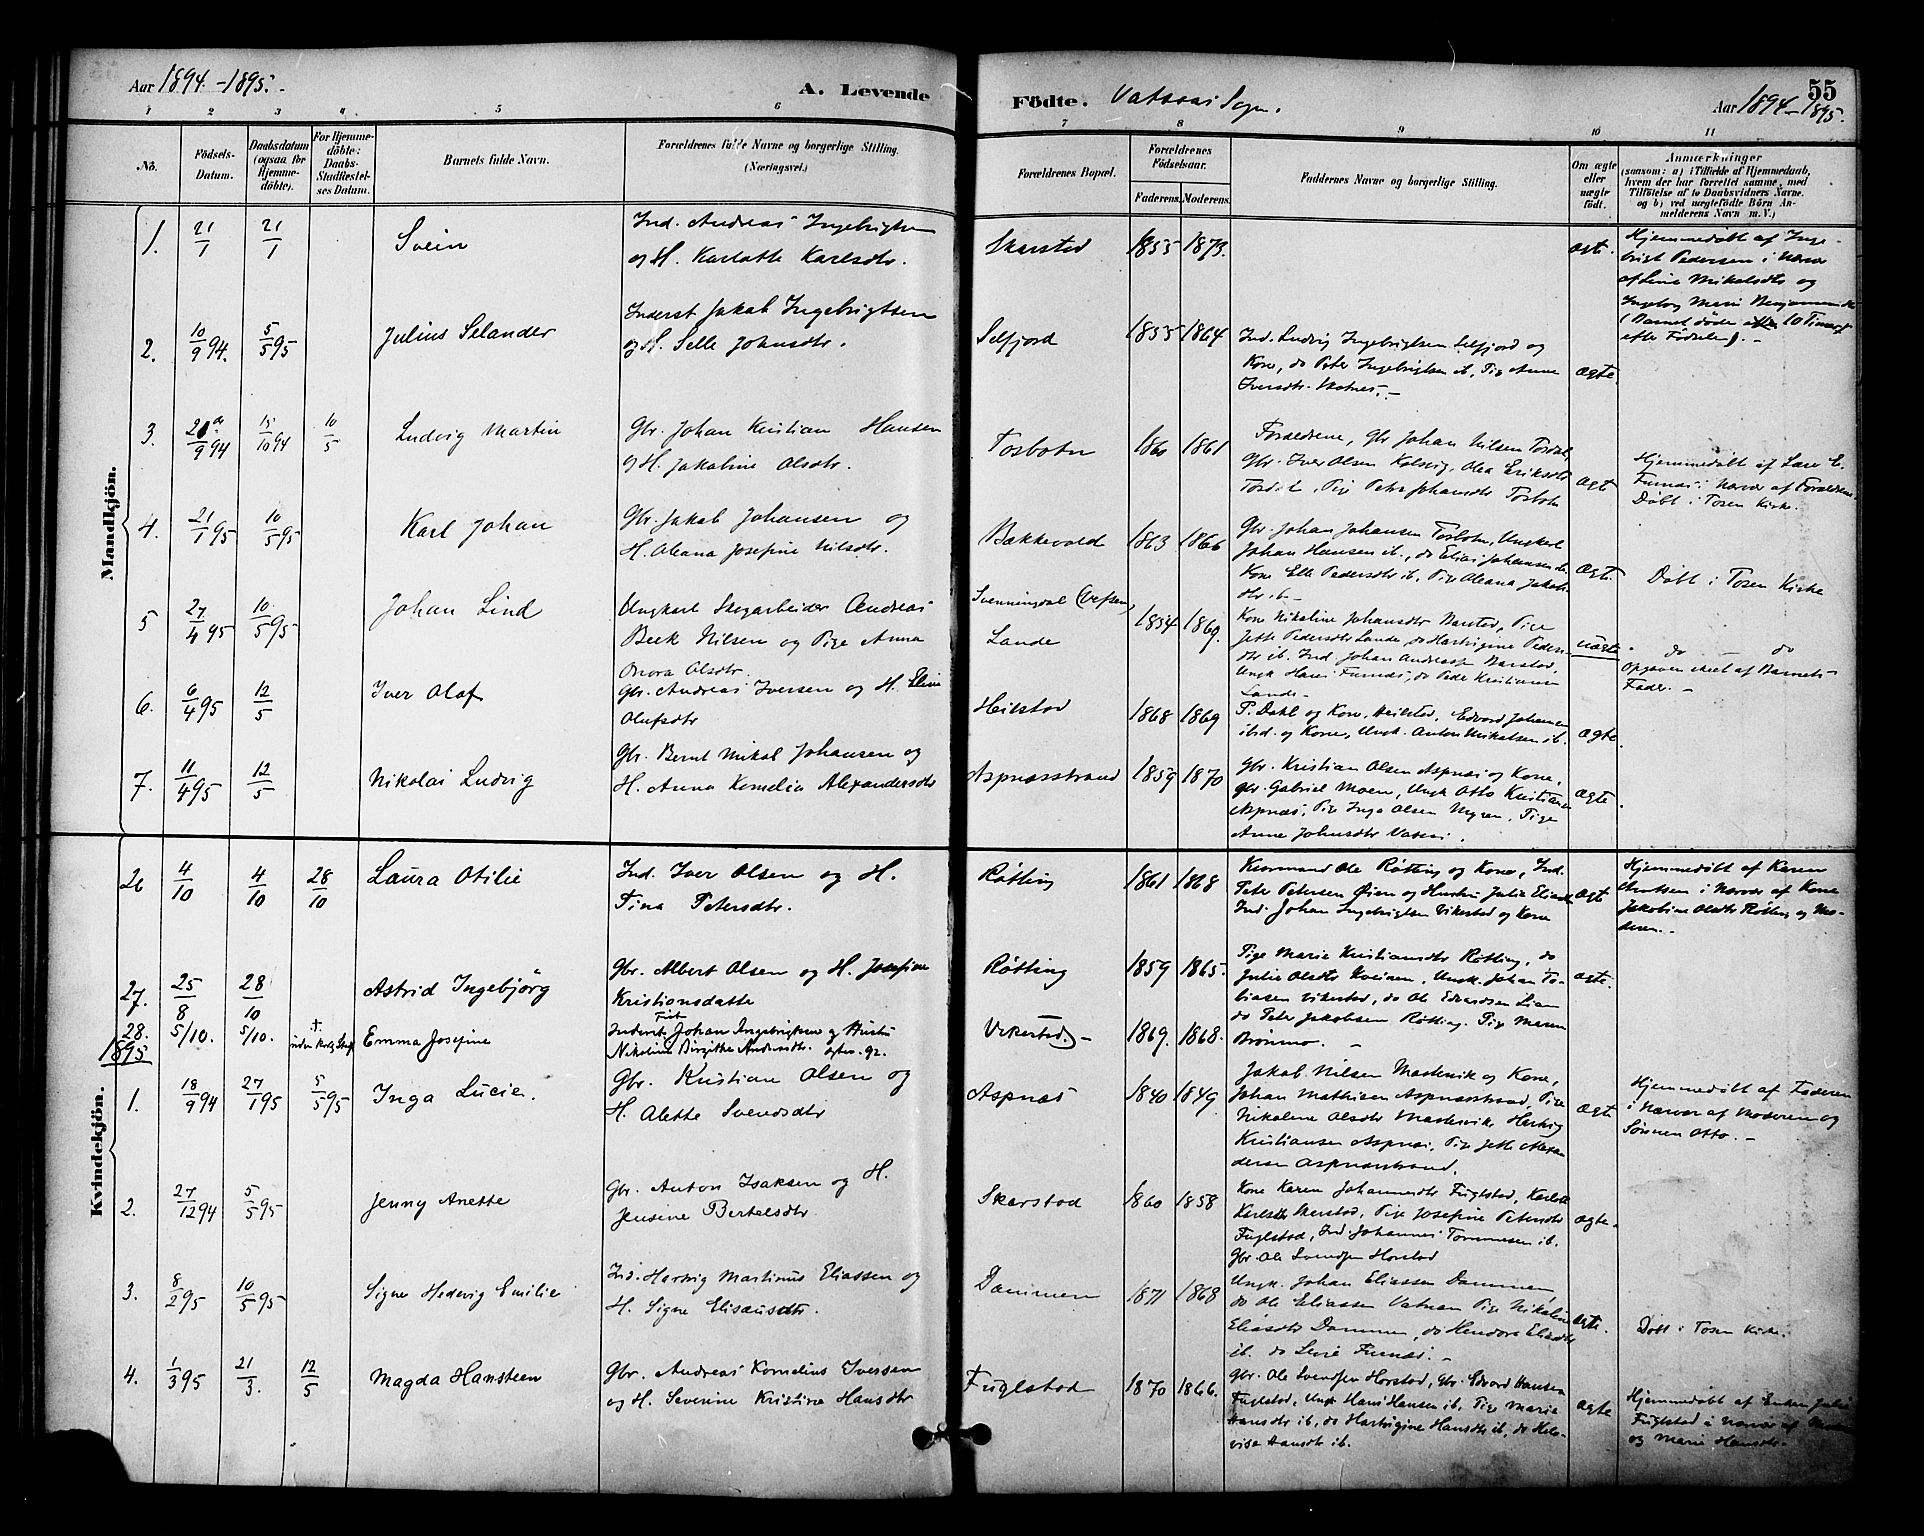 Aar 1894.-1895.-
A. Levende
Födte. Vatsaas Sogn.
55
Aar 1894-1895.
1 2 3 4 5 6 7 8 9 10 11
No.
Födsels-
Datum.
Daabsdatum
(ogsaa for
Hjemme-
döbte).
For Hjemme-
döbte:
Daabs-
Stadfæstel-
ses Datum.
Barnets fulde Navn.
Forældrenes fulde Navne og borgerlige Stilling.
(Næringsvei.)
Forældrenes Bopæl.
Forældrenes
Födselsaar.
Faderens. Moderens.
Faddernes Navne og borgerlige Stilling.
Om ægte
eller
uægte
født.
Anmærkninger
(saasom: a) i Tilfælde af Hjemmedaab,
hvem der har forrettet samme, med
Tilföielse af to Daabsvidners Navne.
og b) ved uægtefödte Börn An-
melderens Navn m. V.)
Mandkjön.
1. 21/1 21/1 Svein
Ind. Andreas Ingebrigtsen
og H. Karlotte Karlsdtr.
Skarstad 1855 1873.
ægte.
Hjemmedøbt af Inge-
brigt Pedersen i Nærvær
af Line Mikelsdtr og
Ingeborg Marie Benjaminsdtr
(Barnet døde 10 Timer
efter Fødselen). -
2. 10/9 94. 5/5 95 Julius Selander
Inderst Jakob Ingebrigtsen
og H. Selle Johnsdtr.
Selfjord 1855 1864
Ind. Ludvig Ingebrigtsen Selfjord og
Kone, do Peter Ingebrigtsen ib, Pige Anne
Iversdtr
ægte.
3. 9 94 15/10 94 10/5 Ludvig Martin
Gbr. Johan Kristian Hansen
og H. Jakobine Olsdtr.
Tosbotn 1860 1861
Forældrene, Gbr Johan Nilsen Tosdal,
Gbr. Iver Olsen Kolsvig, Olea Eriksdtr
Tosdal, Pige Petra Johansdtr Tosbotn
ægte
Hjemmedøbt af Lars E.
Furnes i Nærvær af Forældrene
Døbt i Tosen Kirke.
4. 21/1 95 10/5 95 Karl Johan
Gbr. Jakob Johansen og
H. Oleana Josefine Nilsdtr.
Bækkevold 1863 1866
Gbr. Johan Johansen Tosbotn, Ungkarl
Johan Hansen ib., do Elias Johansen ib.
Kone Elle Pedersdtr ib. Pige Oleana Jakobs-
dtr ib. -
Ægte.
Døbt i Tosen Kirke
5 27/4 95 10/5 95 Johan Lind
Ungkarl Skogarbeider Andreas
Beck Nilsen og Pige Anna
Olsdtr.
Svenningdal (Vefsen)
Lande 1854 1869.
Kone Nikoline Johansdtr Barstad, Pige
Jette Pedersdtr Lande, do Hartvigine Peder-
dtr ib. Ind. Johan Andreas Barstad,
Ungk Hans Furnes, do Peder Kristiansen
Lande -
uægte
do - do
Opgaven skeet af Barnets
Fader. -
6. 6/4 95 12/5 Iver Olaf
Gbr. Andreas Iversen og H. Eline
Olufsdtr
Heilstad 1868 1869
P. Dahl og Kone, Heilstad, Edvard Johansen
ibid. og Kone, Ungk. Anton Mikalsen ib.
ægte.
7. 11/4 95 12/5 Nikolai Ludvig
Gbr. Bernt Mikal Johansen og
H. Anna Kornelia Alexandersdtr
Aspnæsstrand 1859 1870
Gbr. Kristian Olsen Aspnæs og Kone,
Gbr. Gabriel Moen, Ungk Otto Kristiansen
Aspnæs, Pige Inga Olsen Myren, Pige
Anne Johnsdtr Vasaas.
ægte.
Kvindekjön.
26 4/10 4/10 28/10 Laura Otilie
Ind. Iver Olsen og H.
Tina Petersdtr.
Røtting 1861 1868
Kaarmand Ole Røtting og Kone, Ind.
Peter Petersen Øien og Hustru Julie Eliasdtr
Ind. Johan Ingebrigtsen Vikestad og Kone
ægte
Hjemmedøbt af Karen
i Nærvær af Kone
Jakobine Olsdtr Røtting og Mo-
deren. -
27. 25/8 28/10 Astrid Ingebjörg
Gbr. Albert Olsen og H. Josefine
Kristiansdatter
Røtting 1859 1865.
Pige Marie Kristiansdtr Røtting, do
Julie Olsdtr Kveinen, Ungk. Johan To-
biasen Vikestad, do Ole Edvardsen Liam
do Peter Jakobsen Røtting. Pige Maren
Brønmo. -
ægte.
28. 5/10. 5/10. † Emma Josefine
Inderst Johan Ingebrigtsen og Hustru
Nikoline Birgitte Andersdtr.
Vikestad. - 1869. 1868.
1895
1. 18/9 94 27/1 95 5/5 95 Inga Lucie.
Gbr. Kristian Olsen og
H. Alette Svendsdtr
Aspnæs 1840 1849.
Jakob Nilsen Mastervik og Kone,
Johan Mathisen Aspnæsstrand, Pige
Nikoline Olsdtr Mastervik Hartvig
Kristiansen Aspnæs, Pige Jette Alexan
dersen Aspnæsstrand.
Ægte
Hjemmedøbt af Faderen
i Nærvær af Moderen og
Sönnen Otto. -
2. 27/12 94 5/5 95 Jenny Anette
Gbr. Anton Isaksen og H.
Jensine Bertelsdtr.
Skarstad 1860 1858
Kone Karen Johannesdtr Fuglstad, Karlotte
Karlsdtr Skarstad, Pige Josefine Petersdtr
Fuglstad, Ind Johannes Tommesen ib.
Gbr Ole Svendsen Horstad
ægte.
3. 8/2 95 10/5 95 Signe Hedevig Emilie
Ind. Hartvig Martinus Eliassen og
H. Signe Elisæusdtr.
Dammen 1871 1868
Ungk. Johan Eliassen Dammen,
do Ole Eliassen Vatnan Pige Nikoline
Eliasdtr Dammen, do Hendora Eliasdtr
ib. do Furnes. -
ægte.
Døbt i Tosen Kirke.
4. 1/3 95 21/3. 12/5 Magda Hansteen
Gbr. Andreas Kornelius Iversen
og H. Severine Kristine Hansdtr
Fuglstad 1870 1866.
Gbr. Ole Svendsen Horstad, Gbr. Edvard Hansen
Fuglstad, Ungk Hans Hansen ib. Pige Marie
Hansdtr ib, do Hartvigine Hansdtr ib, do Hel-
vise Hansdtr ib.
ægte
Hjemmedøbt af Enken
Fuglstad i Nærvær af
og Marie Hansdtr.